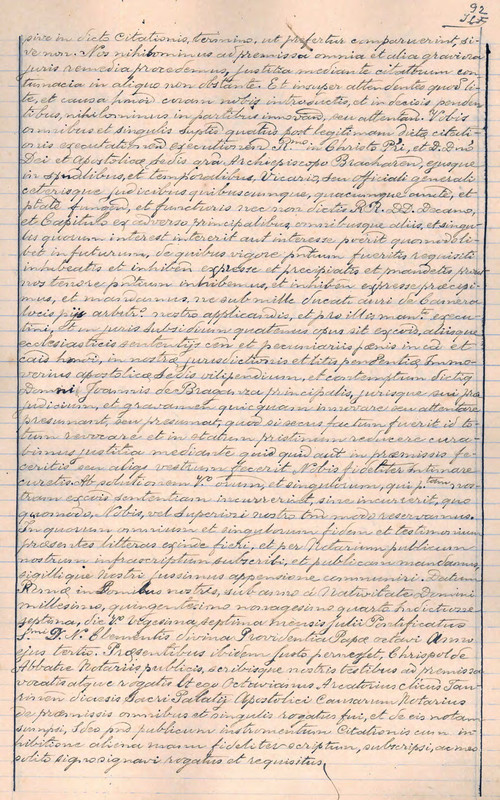 92
sive in dicto Citationis termino, ut præfertur comparuerint, si-
ve non. Nos nihilominus ad præmissa omnia et alia graviora
juris remedia procedemus, justitia mediante citatorum con-
tumacia in aliquo non obstante. Et insuper attendentes quod li-
te, et causa coram nobis introductis, et indecisis penden-
tibus, nihilominus in partibus innovand, seu attentan. Vobis
omnibus et singulis supted quatius post legitimam dictæ citati-
onis executationem executionem Rmo. in Christo Pri, et D. Dno
Dei et Apostolicæ Sedis gra Archiepiscopo Bracharen, ejusque
in spualibus, et temporalibus, Vicario, seu officiali generali
ceterisque judicibus quibuscumque, quacumque aucte, et
ptate fungend, et functuris nec non dictis R.R. DD. Decano,
et Capitulo ex adverso principalibus omnibusque aliis, et singu-
lis quorum interest intererit aut interesse poterit quomodoli-
bet in futurum, de quibus vigore pntium fueritis requisiti
inhibeatis et inhiben expresse et præcipiatis et mandetis prout
nos tenore pntium inhibemus, et inhiben expresse præcipi-
mus, et mandamus, ne sub mille ducati auri de Camera
locis pijs arbitr. nostro applicandis, et pro illor man. execu-
tini, Et in juris subsidium quatenus opus sit excois, aliisque
ecclesiasticis sententijs cen et pecuniariis pænis in cd et
caus hmoi, in nostræ jurisdictionis et litis pendentiæ Immo
verius apostolicæ Sedis vilipendium, et contemptum dictiq
Domni Joannis de Braganza principalis, jurisque sui præ-
judicium, et gravamen quicquam innovare seu attentare
presumant, seu presumat, quod si secus factum fuerit id to-
tum revocare et in statum pristinum reducere cura-
bimus justitia mediante quid quid aut in præmissis fe-
ceritis seu aliqs vestrum fecerit Nobis fideliter intimare
curetis Absolutionem vo oium, et singulorum, qui ptam nos-
tram excois sententiam incurrerint, sive incurrerit, quo
quomodo, Nobis, vel Superiori nostro tm modo reservamus.
In quorum omnium et singulorum fidem et testimonium
præsentes litteras exinde fieri, et per Notarium publicum
nostrum infrascriptum subscribi, et publicari mandavimus,
sigillique nostri jussimus appensione communiri. Datum
Romæ in Ædibus nostris, sub anno a Nativitate Domini
millesimo, quingentesimo nonagesimo quarto Indictione
septima, die vo Vigesima septima mensis Julii Pontificatus
Smi D. N. Clementis divina Providentia Papæ octavi Anno
ejus tertio. Præsentibus ibidem Justo perneget, Chrispol de
Abbatie Notariis publicis, scribisque nostris testibus ad premissa
vocatis atque rogatis Et ego Octavianus Arcatorius clicus Tau-
rinen diœcesis Sacri Palatij Apostolici Causarum Notarius
de præmissis omnibus et singulis rogatus fui, et de eis notam
sumpsi, Ideo pns publicum instromentum Citationis cum in-
hibitione aliena manu fideliter scriptum, subscripsi, ac meo
solito signo signavi rogatus et requisitus.